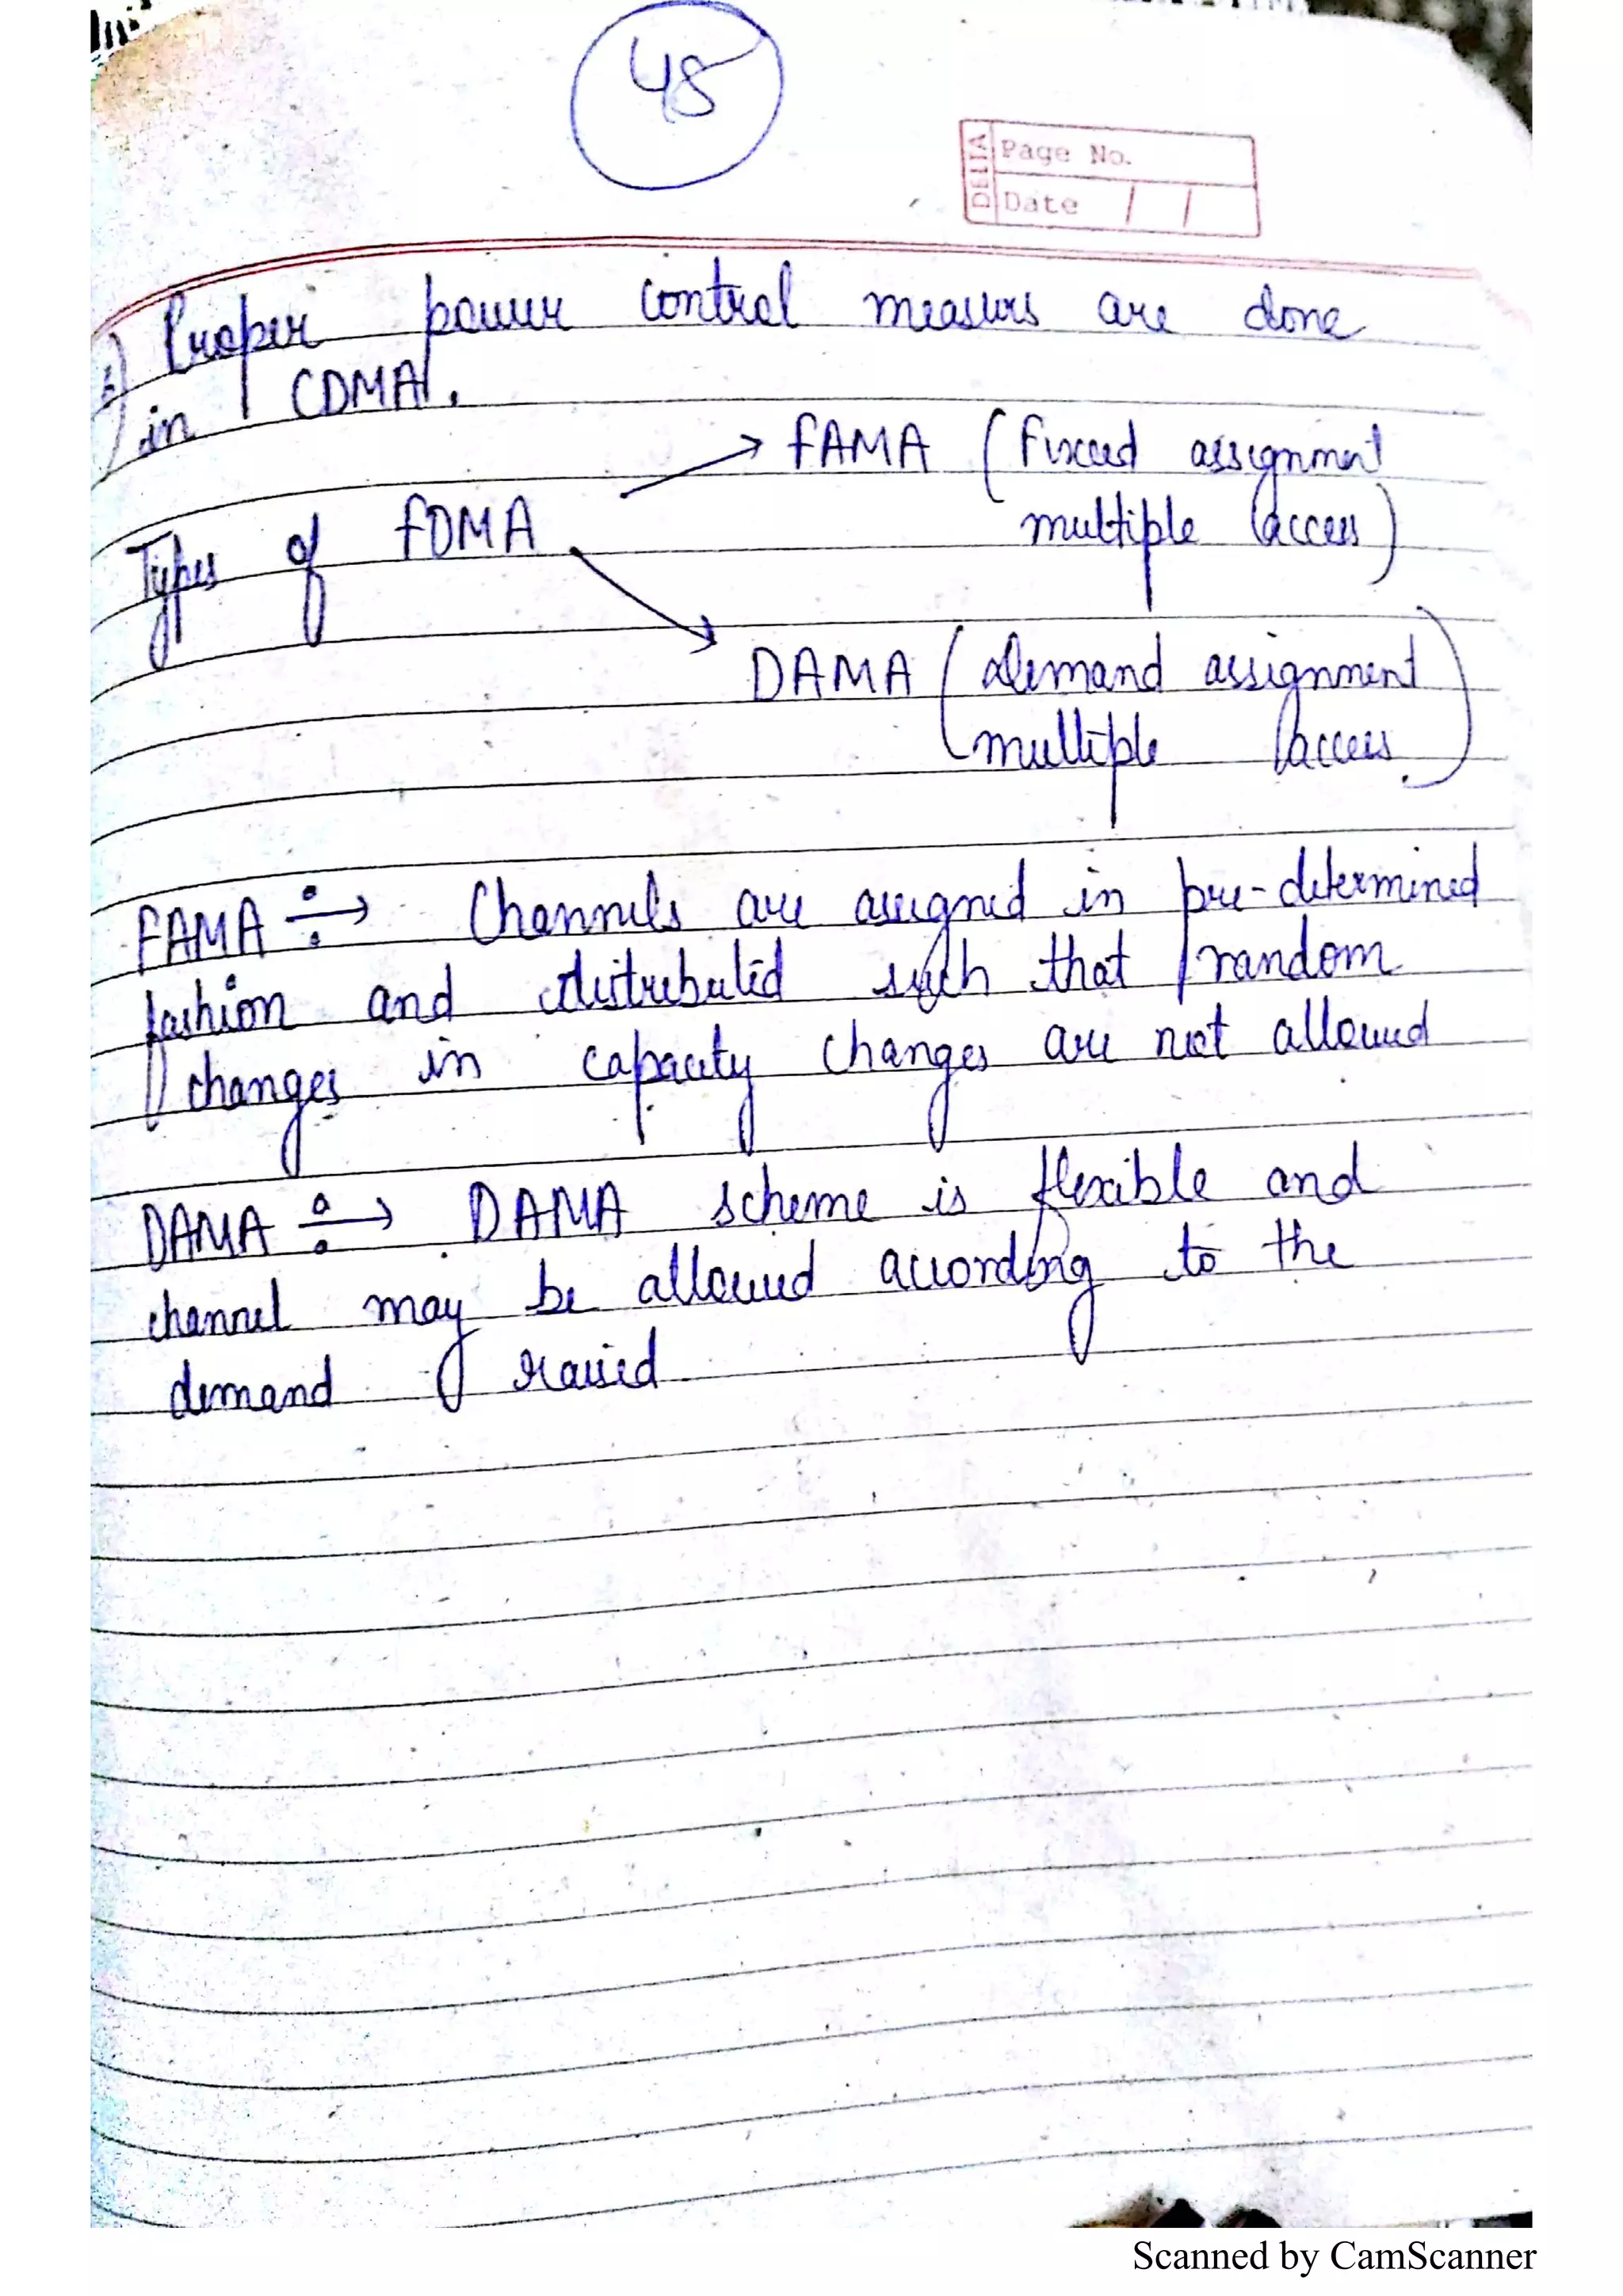 48
DELTA
Page No.
Date / /
Proper power control measurs are done
in CDMA.
Types of FDMA
→ FAMA (Fixed assignment
multiple access)
→ DAMA (demand assignment
multiple access.)
FAMA ÷→ Channels are assigned in pre-determined
fashion and distributed such that random
changes in capacity changes are not allowed
DAMA ÷→ DAMA scheme is flexible and
channel may be allowed according to the
demand raised.
Scanned by CamScanner